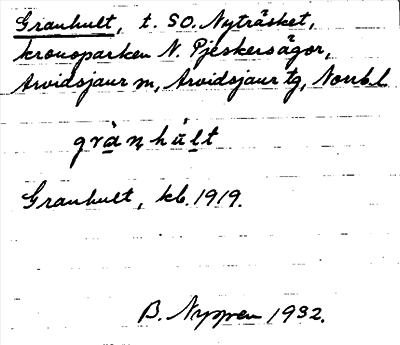 Granhult, t. SO. Nyträsket,
kronoparken N. Pjeskersågor,
Arvidsjaur sn, Arvidsjaur tg, Norrb. l
grànhúlt
Granhult, kb. 1919.
B. Nyppen 1932.